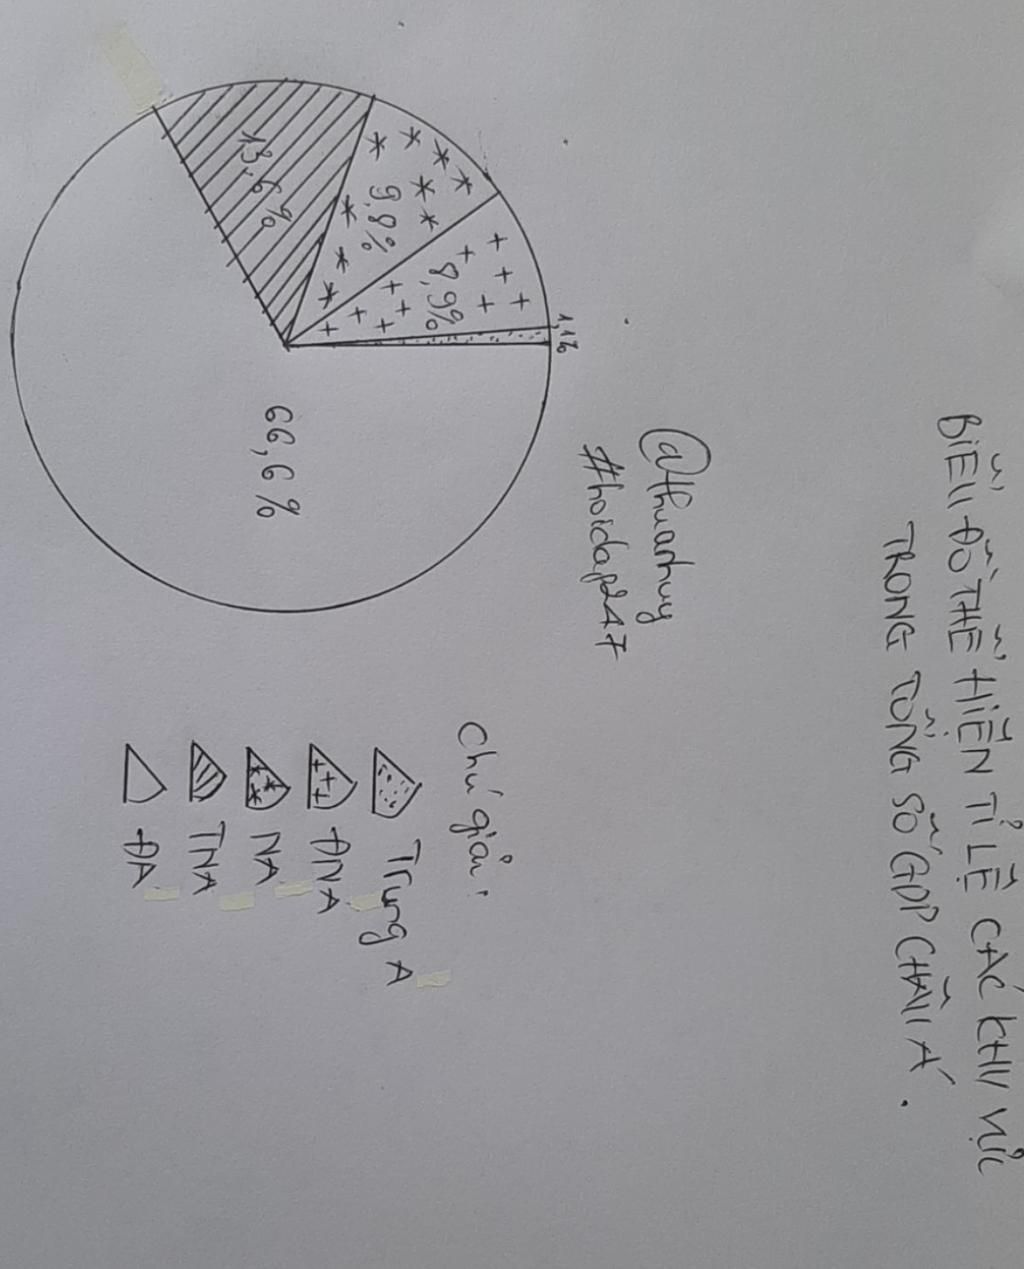 BIỂU ĐỒ THỂ HIỆN TỈ LỆ CÁC KHU VỰC
TRONG TỔNG SỐ GDP CHÂU Á.
@thuanhuy
#hoidap247
1,1%
8,9%
9,8%
13,6%
66,6%
Chú giải:
Trung A
ĐNA
NA
TNA
ĐA